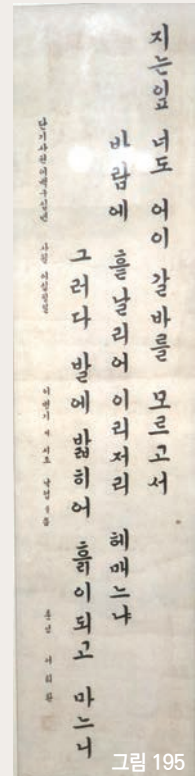 지는잎 너도 어이 갈바를 모르고서
바람에 흩날리어 이리저리 헤매느냐
그러다 발에 밟히어 흙이되고 마느니
단기사천이백구십년 사월 이병기 시조 낙엽 서희환
그림 195